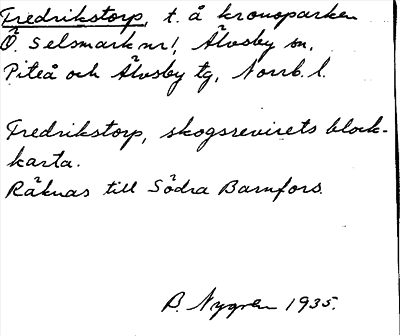 Fredrikstorp, t. å kronoparken
Ö. Selsmark nr 1, Älvsby sn,
Piteå och Älvsby tg, Norrb. l.
Fredrikstorp, skogsrevirets block-
karta.
Räknas till Södra Barnfors
B. Nygren 1935.